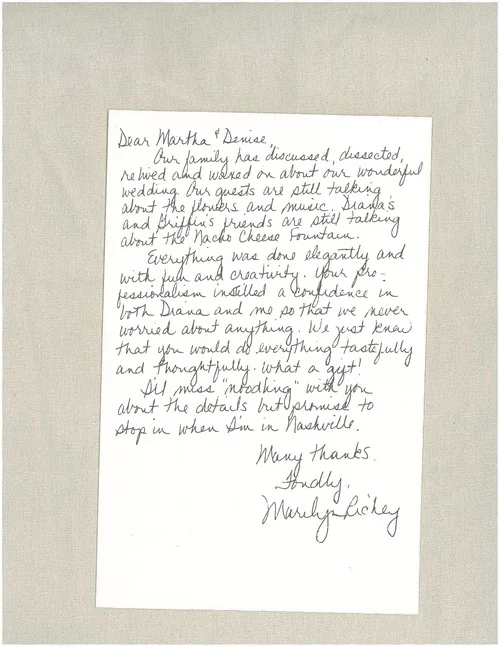 Dear Martha & Denise
Our family has discussed, dissected,
relived and waxed on about our wonderful
wedding. Our guests are still talking
about the flowers and music. Diana's
and Griffin's friends are still talking
about the Nacho Cheese Fountain.
Everything was done elegantly and
with fun and creativity. Your pro-
fessionalism instilled a confidence in
both Diana and me so that we never
worried about anything. We just knew
that you would do everything tastefully
and thoughtfully. What a gift!
I'll miss "noodling" with you
about the details but promise to
stop in when I'm in Nashville.
Many thanks.
Fondly,
Marilyn Richey